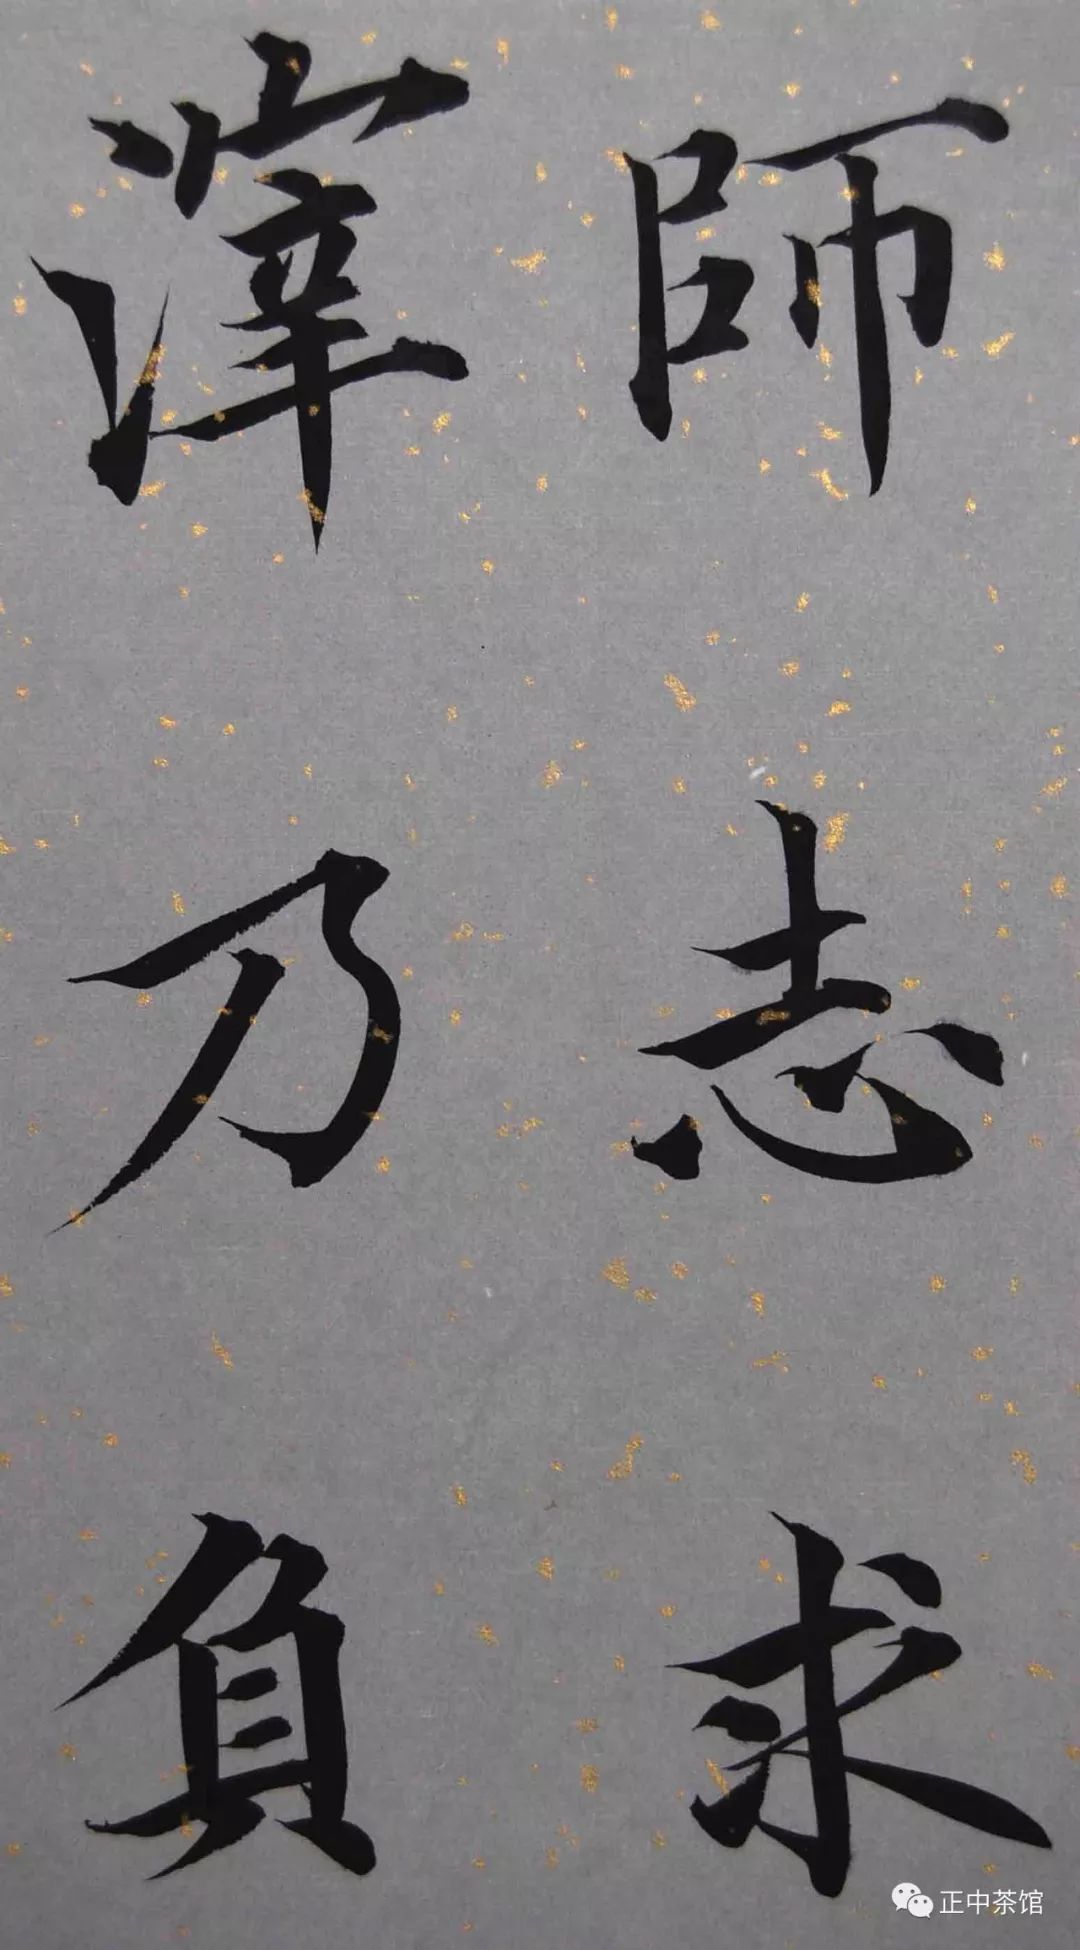 師志求
滓乃負
正中茶馆